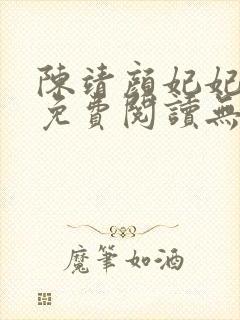 陳靖顏妃妃
免費閱讀無
魔筆如酒